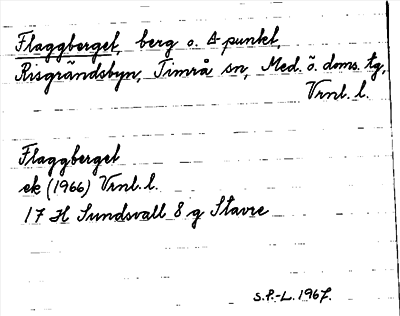 Flaggberget, berg o. Δ-punkt,
Risgrändsbyn, Timrå sn, Med. ö. doms. tg,
Vrnl. l.
Flaggberget
ek (1966) Vrnl. l.
17 H Sundsvall 8 g Stavre
S.P.-L. 1967.